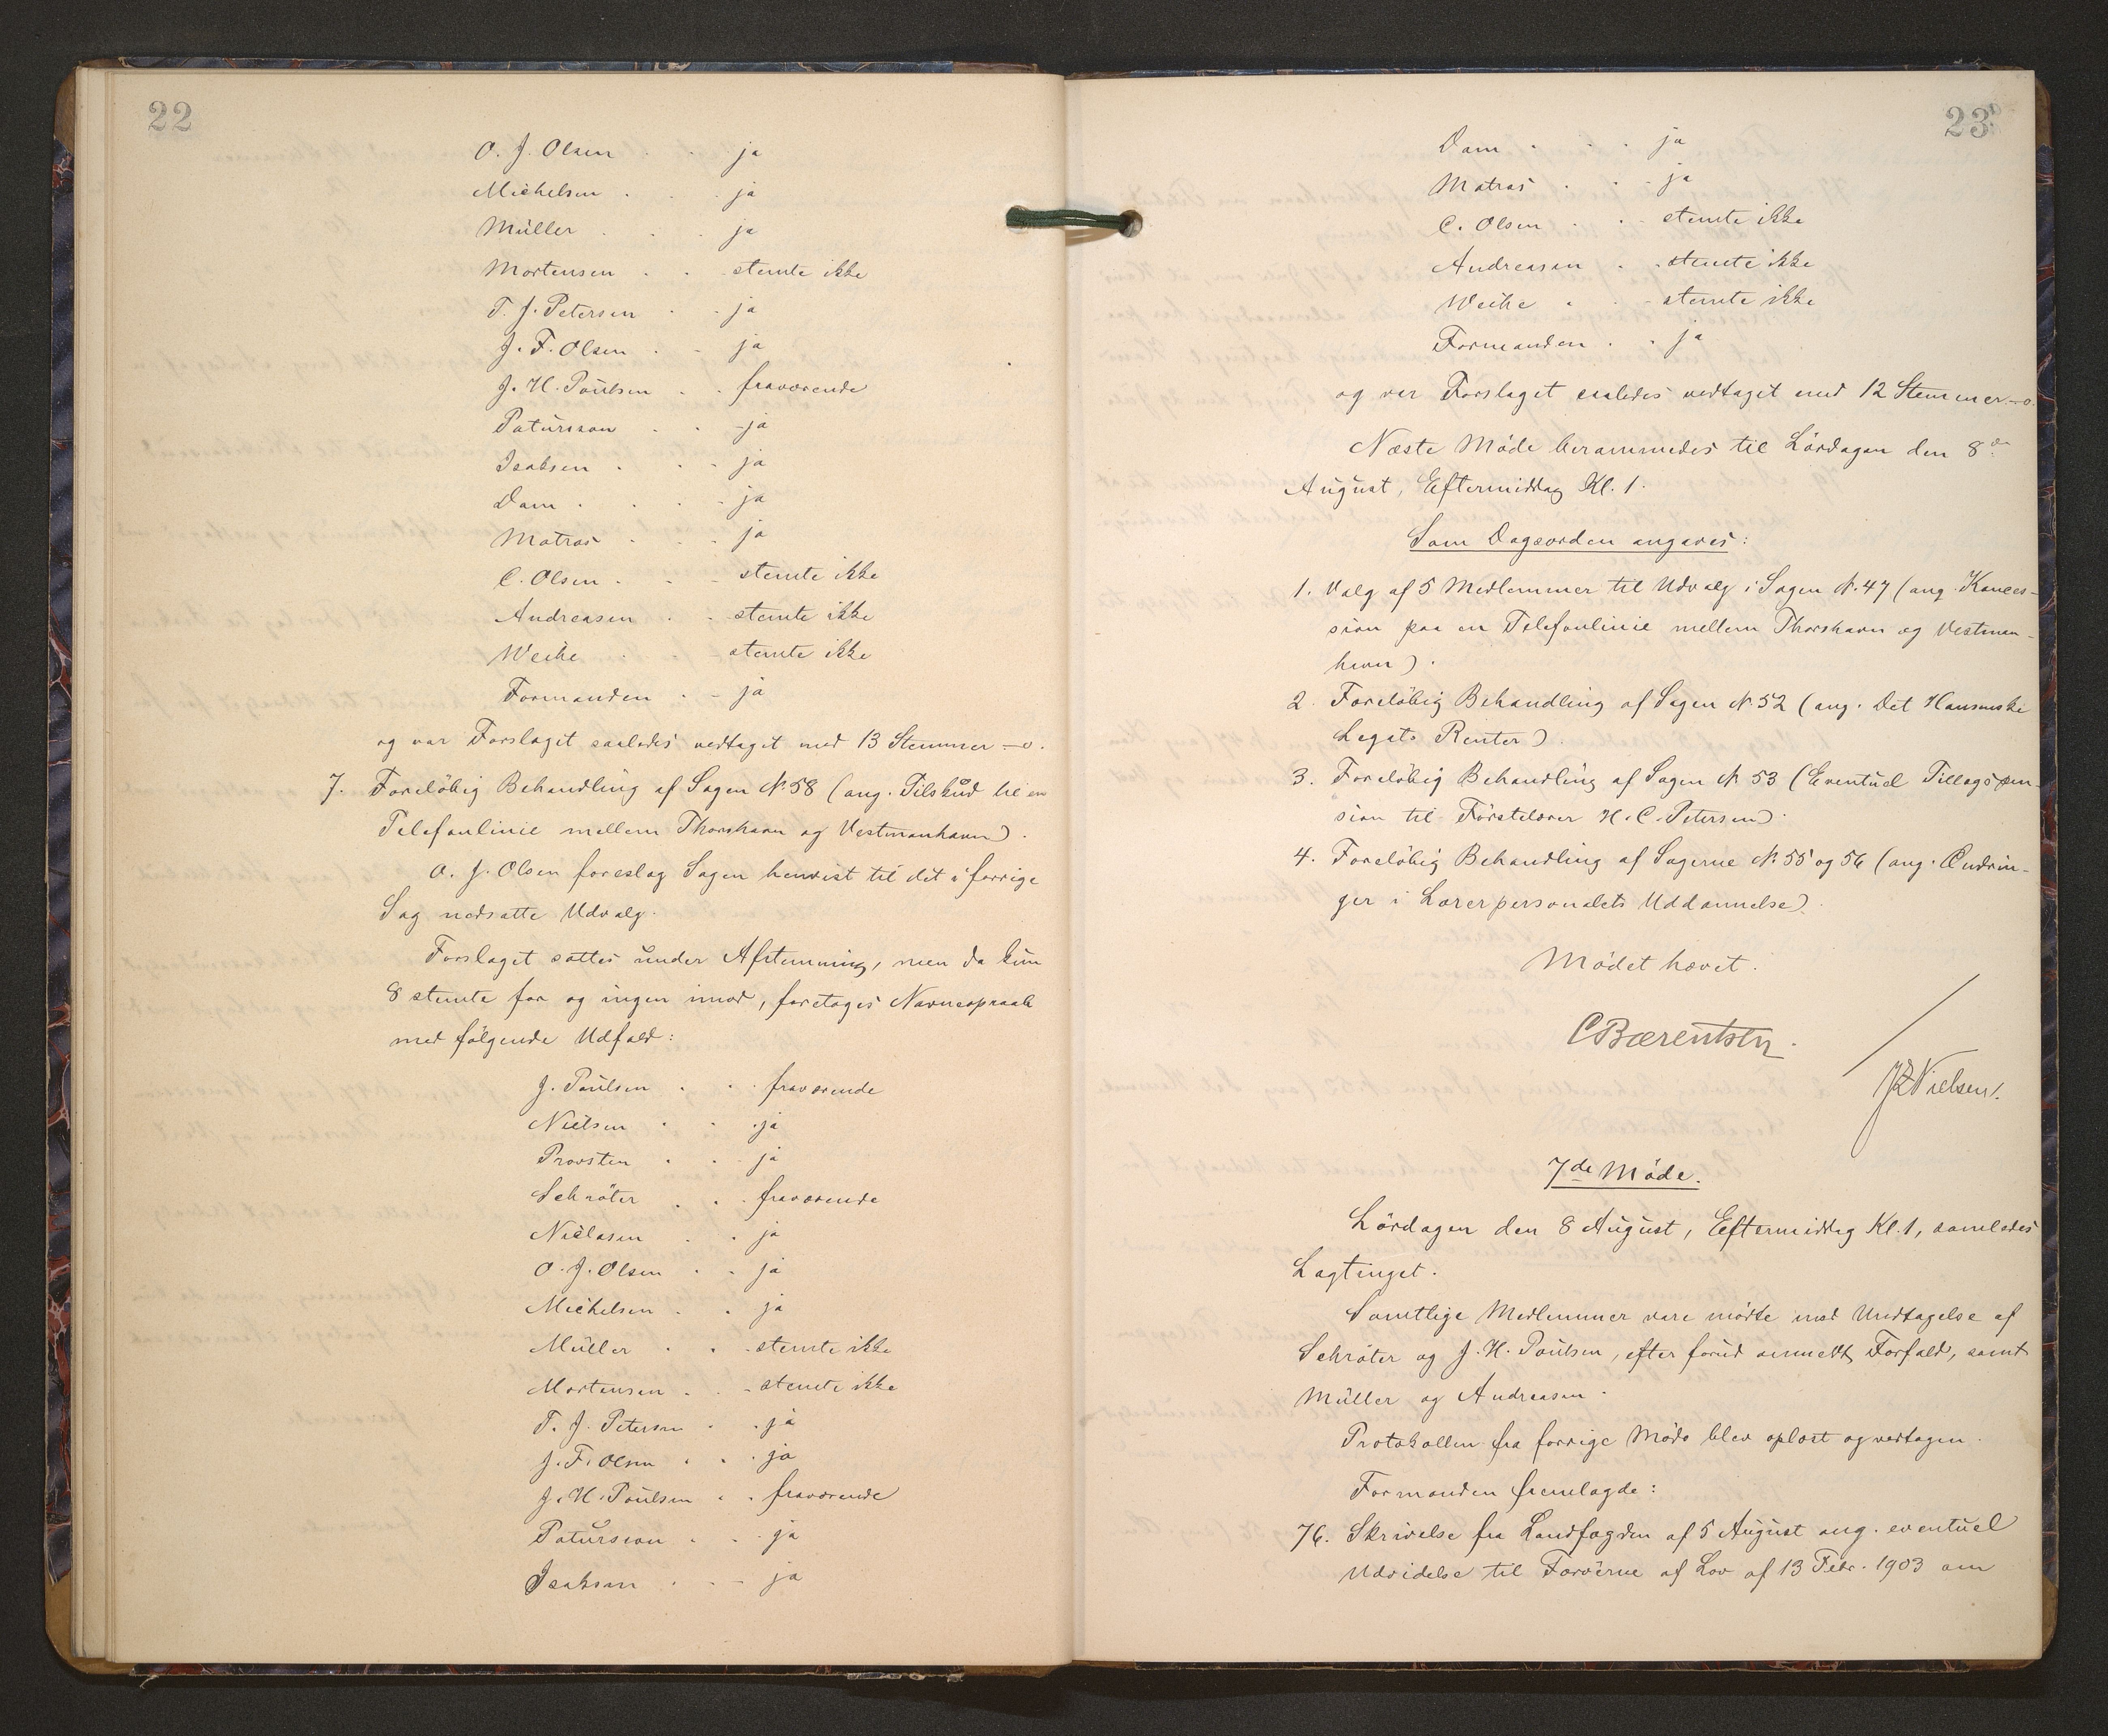 22
O. J. Olsen . . ja
Michelsen . . ja
Müller . . . ja
Mortensen . . stemte ikke
T. J. Petersen . . ja
J. F. Olsen . . ja
J. H. Poulsen . . fraværende
Patursson . . ja
Isaksen . . . ja
Dam . . . ja
Matras . . . ja
C. Olsen . . . stemte ikke
Andreasen . . stemte ikke
Weihe . . stemte ikke
Formanden . . ja
og var Forslaget saaledes vedtaget med 13 Stemmer —o.
7. Foreløbig Behandling af Sagen N. 58 (ang. Tilskud til en
Telefonlinie mellem Thorshavn og Vestmanhavn).
O. J. Olsen foreslog Sagen henvist til det i forrige
Sag nedsatte Udvalg.
Forslaget sattes under Afstemning, men da kun
8 stemte for og ingen imod, foretoges Navneopraab
med følgende Udfald:
J. Poulsen . . fraværende
Nielsen . . . ja
Provsten . . ja
Schrøter . . fraværende
Niclasen . . ja
O. J. Olsen . . ja
Michelsen . . ja
Müller . . stemte ikke
Mortensen . . stemte ikke
T. J. Petersen . . ja
J. F. Olsen . . . ja
J. H. Poulsen . . fraværende
Patursson . . ja
Isaksen . . . ja
23
Dam . . . ja
Matras . . . ja
C. Olsen . . stemte ikke
Andreasen . . stemte ikke
Weihe . . stemte ikke
Formanden . . ja
og var Forslaget saaledes vedtaget med 12 Stemmer —o.
Næste Møde berammedes til Lørdagen den 8de
August, Eftermiddag Kl. 1.
Som Dagsorden angaves:
1. Valg af 5 Medlemmer til Udvalg i Sagen N. 47 (ang. Konces-
sion paa en Telefonlinie mellem Thorshavn og Vestman-
havn).
2. Foreløbig Behandling af Sagen N. 52 (ang. Det Hansenske
Legats Renter).
3. Foreløbig Behandling af Sagen N. 53 (Eventuel Tillægspen-
sion til Førstelærer H. C. Petersen).
4. Foreløbig Behandling af Sagerne N. 55 og 56 (ang. Ændrin-
ger i Lærerpersonalets Uddannelse).
Mødet hævet.
C Bærentsen.
/ Nielsen.
7de Møde.
Lørdagen den 8 August, Eftermiddag Kl. 1, samledes
Lagtinget.
Samtlige Medlemmer vare mødte med Undtagelse af
Schrøter og J. H. Poulsen, efter forud anmeldt Forfald, samt
Müller og Andreasen.
Protokollen fra forrige Møde blev oplæst og vedtagen.
Formanden fremlagde:
76. Skrivelse fra Landfogden af 5 August ang. eventuel
Udvidelse til Færøerne af Lov af 13 Febr. 1903 om